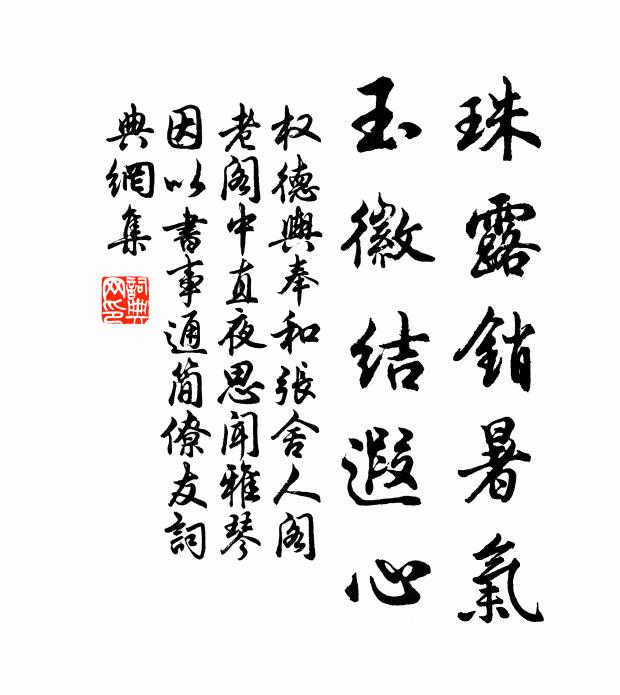 珠露銷暑氣
玉徽結遐心
权德輿奉和張舍人阁
老阁中直夜思聞雅琴
因以書事通简僚友詞
典網集
詞典
网印